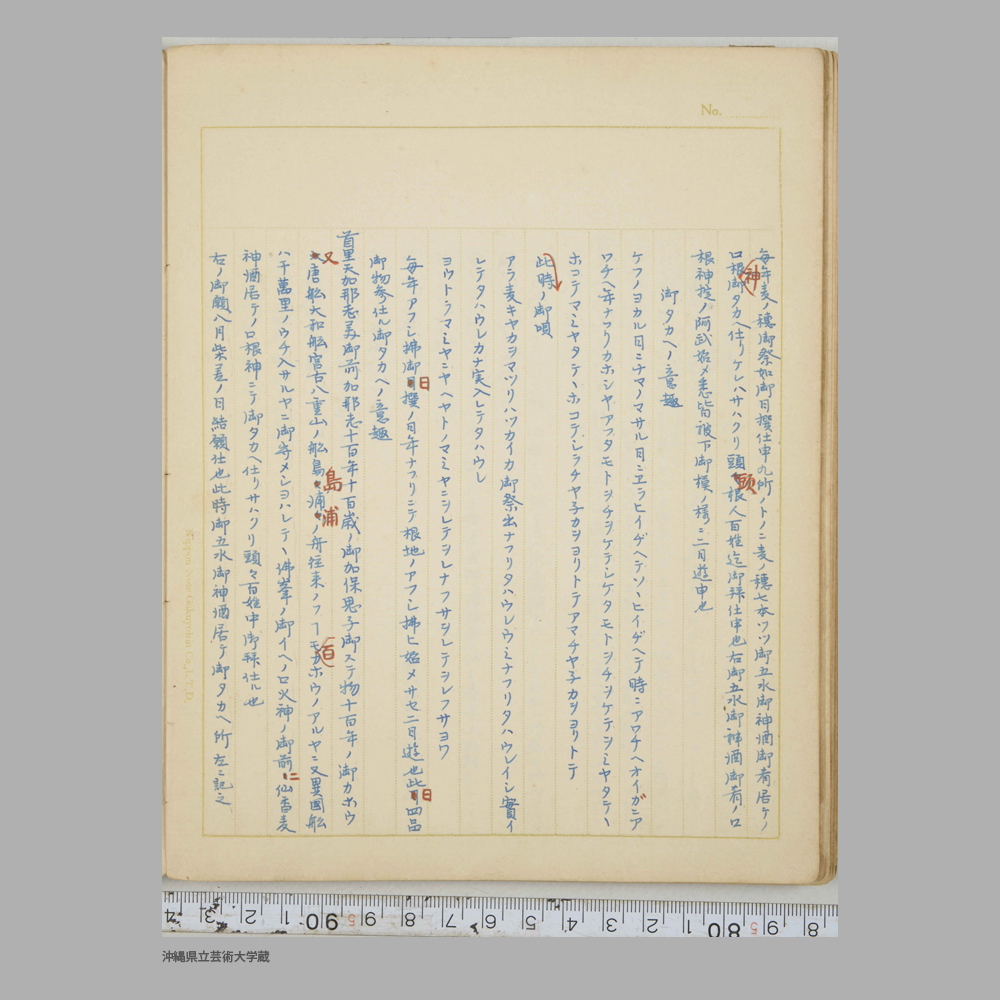 No.
毎年麦ノ穂御祭如御日撰仕申九所ノトノニ麦ノ穂七本ツツ御五水御神酒御肴居ケノ
ロ根神御タカヘ仕リケレハサハクリ頭頭根人百姓迄御拝仕申也右御五水御神酒御肴ノロ
根神掟ノ阿武姶メ悉皆被下御模ノ穂ニ二日遊申也
御タカヘノ意趣
ケフノヨカル日ニナマノマサル日ニヱラヒイゲヘテソヽヒイゲヘテ時ニアワチヘオイガニア
ワチヘ年ナフリカホシヤアフタモトヲシチヲシケテシケタモトヲシチヲシケテシミヤタテヽ
ホコテノマミヤタテヽホコテノシラチヤ子カヲヨリトテアマチヤ子カヲヨリトテ
此時ノ御唄
アラ麦キヤカヲマツリハツカイカ御祭出ナフリタハウレウミナフリタハウレイシ實イ
レテタハウレカナ実入レテタハウレ
ヨウトラマミヤニヤヘヤトノマミヤニシレテシレナフサシレテシレフサヨワ
毎年アフシ拂御日撰ノ日年ナフリニテ根地ノアフシ拂ヒ始メサセ二日遊也此日四品
御物参仕ル御タカヘノ意趣
首里天加那志美御前加那志十百年十百歳ノ御加保思子御ステ物十百年ノ御カホウ
又唐船大和船宮古八重山ノ船島島浦浦ノ船往来ノフー百カホウノアルヤニ又異國船
ハ千萬里ノウチ入サルヤニ御守メシヨハレテヽ佛峯ノ御イヘノロ火神ノ御前ニ仙香麦
神酒居テノロ根神ニテ御タカヘ仕リサハクリ頭々百姓中御拝仕ル也
右ノ御願八月柴差ノ日結願仕也此時御五水御神酒居ケ御タカヘ所左ニ記之
沖縄県立芸術大学蔵